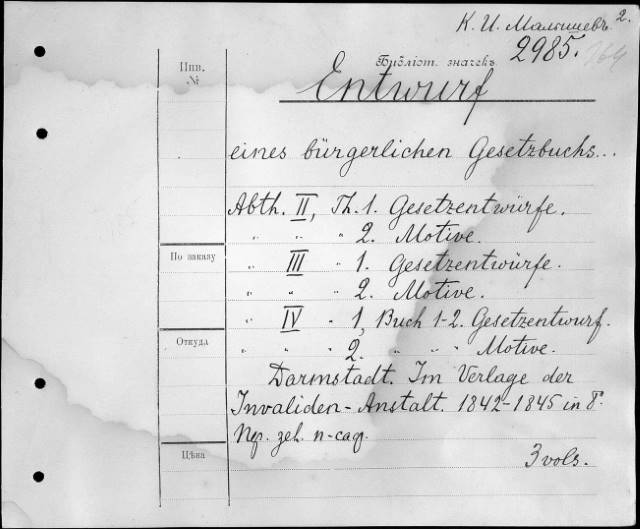 К. И. Малышевъ 2.
Инв. №
Библіот. значекъ 2985. 164
Entwurf
eines bürgerlichen Gesetzbuchs...
Abth. II, Th. 1. Gesetzentwürfe.
" " " 2. Motive.
По заказу
" III " 1. Gesetzentwürfe.
" " " 2. Motive.
" IV " 1, Buch 1-2. Gesetzentwurf.
Откуда
" " " 2. " " Motive.
Darmstadt. Im Verlage der
Invaliden-Anstalt. 1842-1845 in 8°.
Цѣна
3 vols.